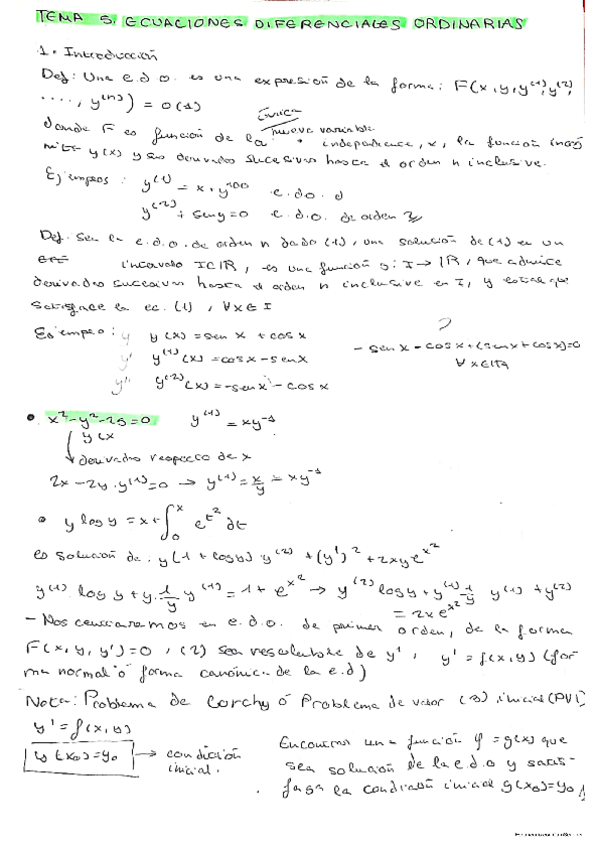 TEMA 5. ECUACIONES DIFERENCIALES ORDINARIAS
1. Introducción
Def: Una e.d.o. es una expresión de la forma: F(x, y, y⁽¹⁾, y⁽²⁾,
...., y⁽ⁿ⁾) = 0 (1)
única
donde F es función de la nueva variable independiente, x, la función incóg
nita y(x) y sus derivadas sucesivas hasta el orden n inclusive.
Ejemplos: y⁽¹⁾ = x + y¹⁰⁰ e.d.o. 1
y⁽²⁾ + sen y = 0 e.d.o. de orden 2
Def. Sea la e.d.o. de orden n dada (1), una solución de (1) en un
intervalo I⊂ℝ, es una función y: I → ℝ, que admite
derivadas sucesivas hasta el orden n inclusive en I, y estas que
satisface la ec. (1), ∀x∈I
Ejemplo: y y(x) = sen x + cos x
y' y⁽¹⁾(x) = cos x - sen x
- sen x - cos x + (sen x + cos x) = 0
∀x∈ℝ
y'' y⁽²⁾(x) = -sen x - cos x
x² - y² - 25 = 0 y⁽¹⁾ = xy⁻¹
derivados respecto de x
2x - 2y·y⁽¹⁾ = 0 → y⁽¹⁾ = x/y = xy⁻¹
• y log y = x + ∫₀ˣ e^(t²) dt
es solución de: y(1 + log y) y⁽²⁾ + (y')² + 2xy e^(x²)
y⁽¹⁾ log y + y·1/y y⁽¹⁾ = 1 + e^(x²) → y⁽²⁾ log y + y⁽¹⁾ 1/y y⁽¹⁾ + y⁽²⁾
= 2x e^(x²)
- Nos centraremos en e.d.o. de primer orden, de la forma
F(x, y, y') = 0, (2) sea resoluble de y', y' = f(x, y) (for
ma normal ó forma canónica de la e.d)
Nota: Problema de Cauchy ó Problema de valor (3) inicial (PVI)
y' = f(x, y)
y(x₀) = y₀ → condición
inicial.
Encontrar una función φ = g(x) que
sea solución de la e.d.o y satis-
faga la condición inicial g(x₀) = y₀